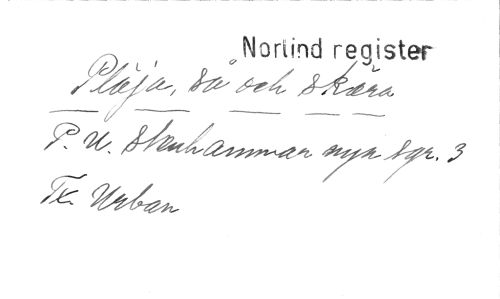 Norlind register
Plöja, så och skära
P. U. Stenhammar nyn sgr. 3
Tx. Urban